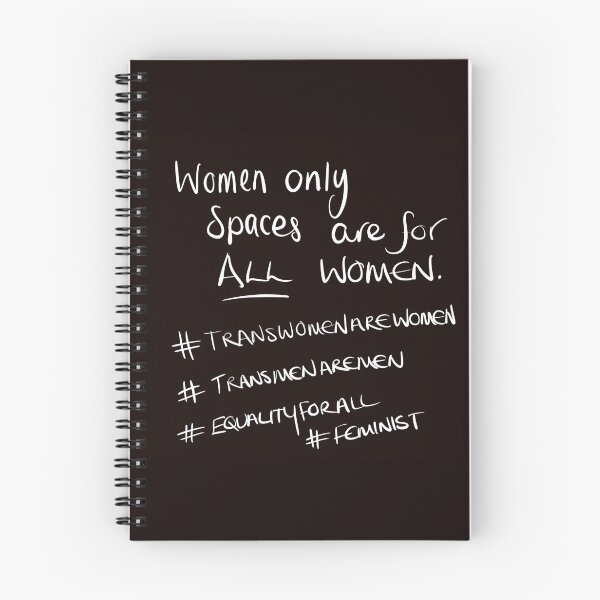 Women only
Spaces are for
ALL WOMEN.
#TRANSWOMENAREWOMEN
#TRANSMENAREMEN
#EQUALITYFORALL
#FEMINIST